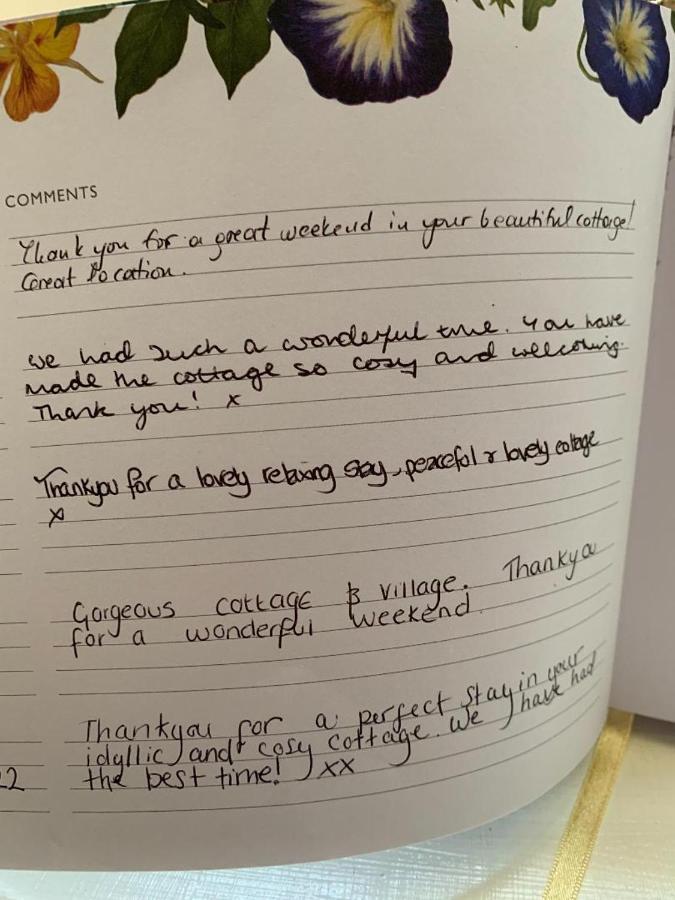 COMMENTS
Thank you for a great weekend in your beautiful cottage!
Great location.
we had such a wonderful time. You have
made the cottage so cosy and welcoming.
Thank you! x
Thankyou for a lovely relaxing stay, peaceful & lovely cottage
x
Gorgeous cottage & village. Thankyou
for a wonderful weekend.
Thankyou for a perfect stay in your
idyllic and cosy cottage. We have had
the best time! xx
22